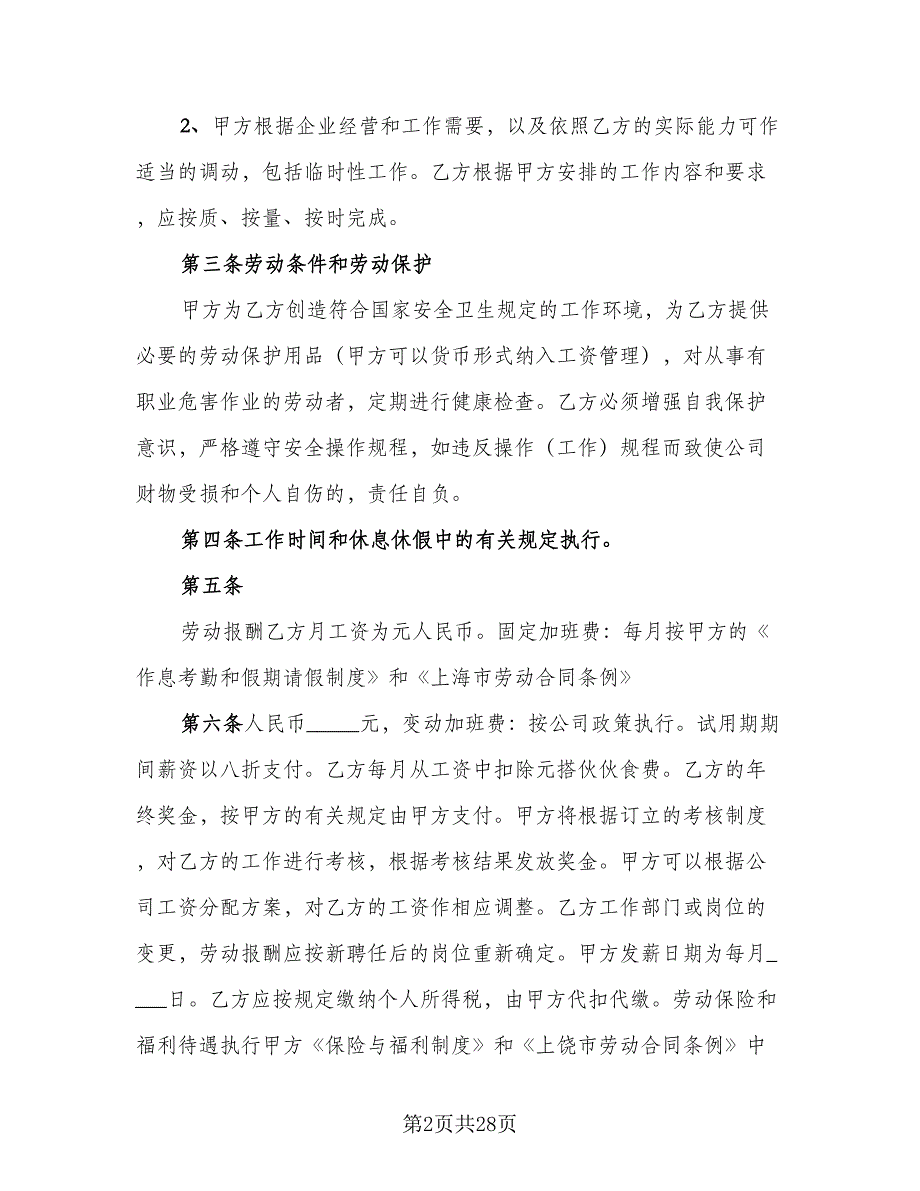 2、甲方根据企业经营和工作需要，以及依照乙方的实际能力可作
适当的调动，包括临时性工作。乙方根据甲方安排的工作内容和要求
，应按质、按量、按时完成。
第三条劳动条件和劳动保护
甲方为乙方创造符合国家安全卫生规定的工作环境，为乙方提供
必要的劳动保护用品（甲方可以货币形式纳入工资管理），对从事有
职业危害作业的劳动者，定期进行健康检查。乙方必须增强自我保护
意识，严格遵守安全操作规程，如违反操作（工作）规程而致使公司
财物受损和个人自伤的，责任自负。
第四条工作时间和休息休假中的有关规定执行。
第五条
劳动报酬乙方月工资为元人民币。固定加班费：每月按甲方的《
作息考勤和假期请假制度》和《上海市劳动合同条例》
第六条人民币_____元，变动加班费：按公司政策执行。试用期期
间薪资以八折支付。乙方每月从工资中扣除元搭伙伙食费。乙方的年
终奖金，按甲方的有关规定由甲方支付。甲方将根据订立的考核制度
，对乙方的工作进行考核，根据考核结果发放奖金。甲方可以根据公
司工资分配方案，对乙方的工资作相应调整。乙方工作部门或岗位的
变更，劳动报酬应按新聘任后的岗位重新确定。甲方发薪日期为每月_
___日。乙方应按规定缴纳个人所得税，由甲方代扣代缴。劳动保险和
福利待遇执行甲方《保险与福利制度》和《上饶市劳动合同条例》中
第2页共28页